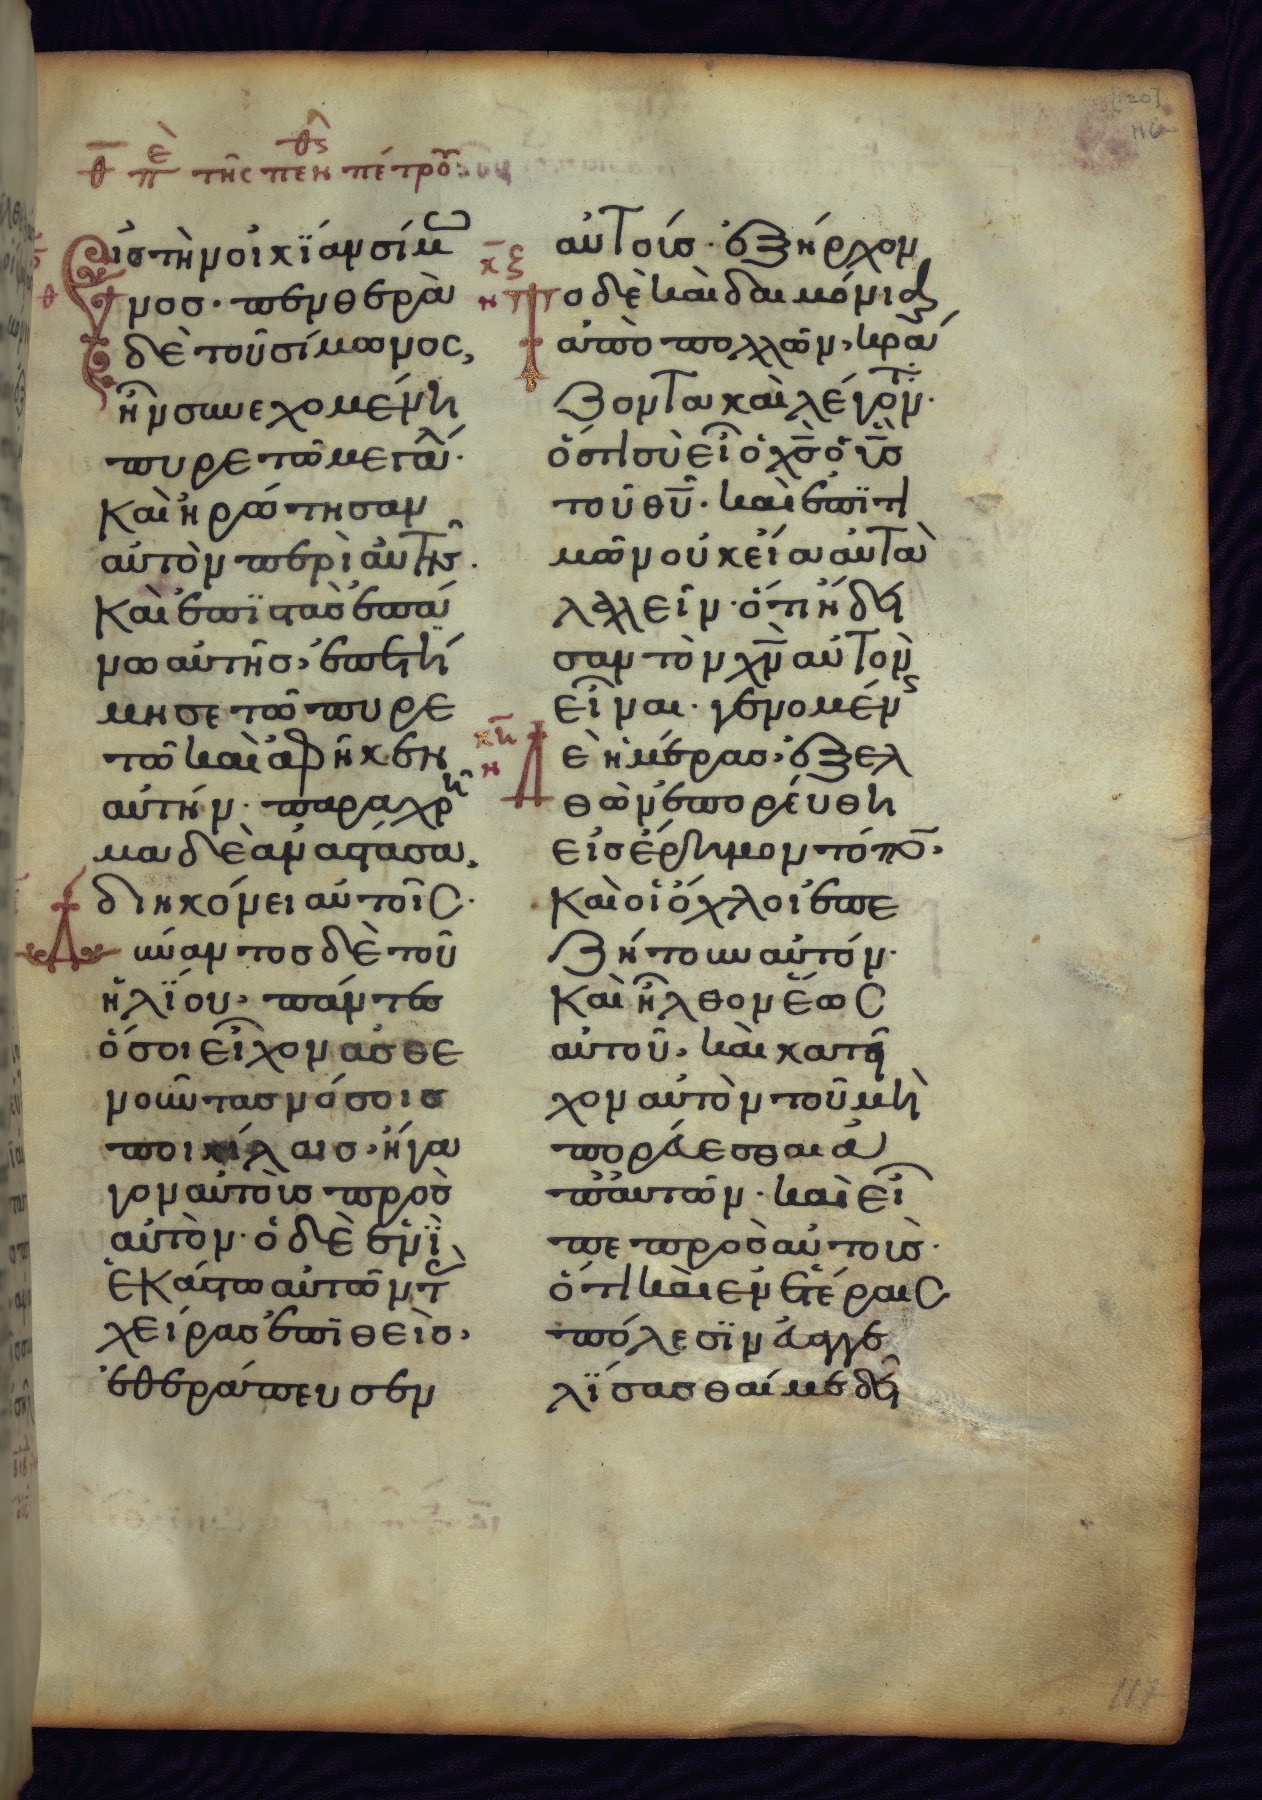 θ̄ π̄ὲ τῆς πεν πέτρο͂:
Εἰς τὴν οἰκΐαν σίμ
νος· πενθερὰ
δὲ τοῦ σίμωνος,
ἦν συνεχομένη
πυρετῶ μεγάλ·
Καὶ ἠρώτησαν
αὐτὸν περὶ αὐτῆς.
Καὶ ἐπϊστὰς ἐπά
νω αὐτῆς, ἐπετί
μησε τῶ πυρε
τῶ καὶ ἀφῆκεν
αὐτήν· παραχρῆ
μα δὲ ἀναστάσα,
διηκόνει αὐτοῖς·
Δύναντος δὲ τοῦ
ἡλϊου, πάντες
ὅσοι εἶχον ἀσθε
νοῦντας νόσοις
ποικίλαις, ἤγα
γον αὐτοὺς πρὸς
αὐτὸν· ὁ δὲ ἑνῒ
ἑκάστω αὐτῶν τ
χεῖρας ἐπιθεὶς,
ἐθεράπευσεν
αὐτούς· ἐξήρχον
κ̄ξ
η
το δὲ καὶ δαιμόνια
ἀπὸ πολλῶν, κρά
ζοντα καὶ λέγοντ·
ὅτι σὺ εἶ ὁ χ̄ς ὁ ῡς
τοῦ θῡ· καὶ ἐπϊτι
μῶν οὐκ εἴα αὐτὰ
λαλεῖν· ὅτι ἤδει
σαν τὸν χ̄ν αὐτὸν
εἶναι· γενομένς
κ̄η
η
Δὲ ἡμέρας, ἐξελ
θὼν ἐπορεύθη
εἰς ἔρημον τόπο̄,
Καὶ οἱ ὄχλοι ἐπε
ζήτουν αὐτόν·
Καὶ ἦλθον ἕως
αὐτοῦ, καὶ κατεῖ
χον αὐτὸν τοῦ μὴ
πορεύεσθαι ἀ
π' αὐτῶν· καὶ εἶ
πε πρὸς αὐτοὺς·
ὅτι καὶ ἐν ἑτέραις
πόλεσϊν εὐαγγε
λΐσασθαί με δεῖ
117